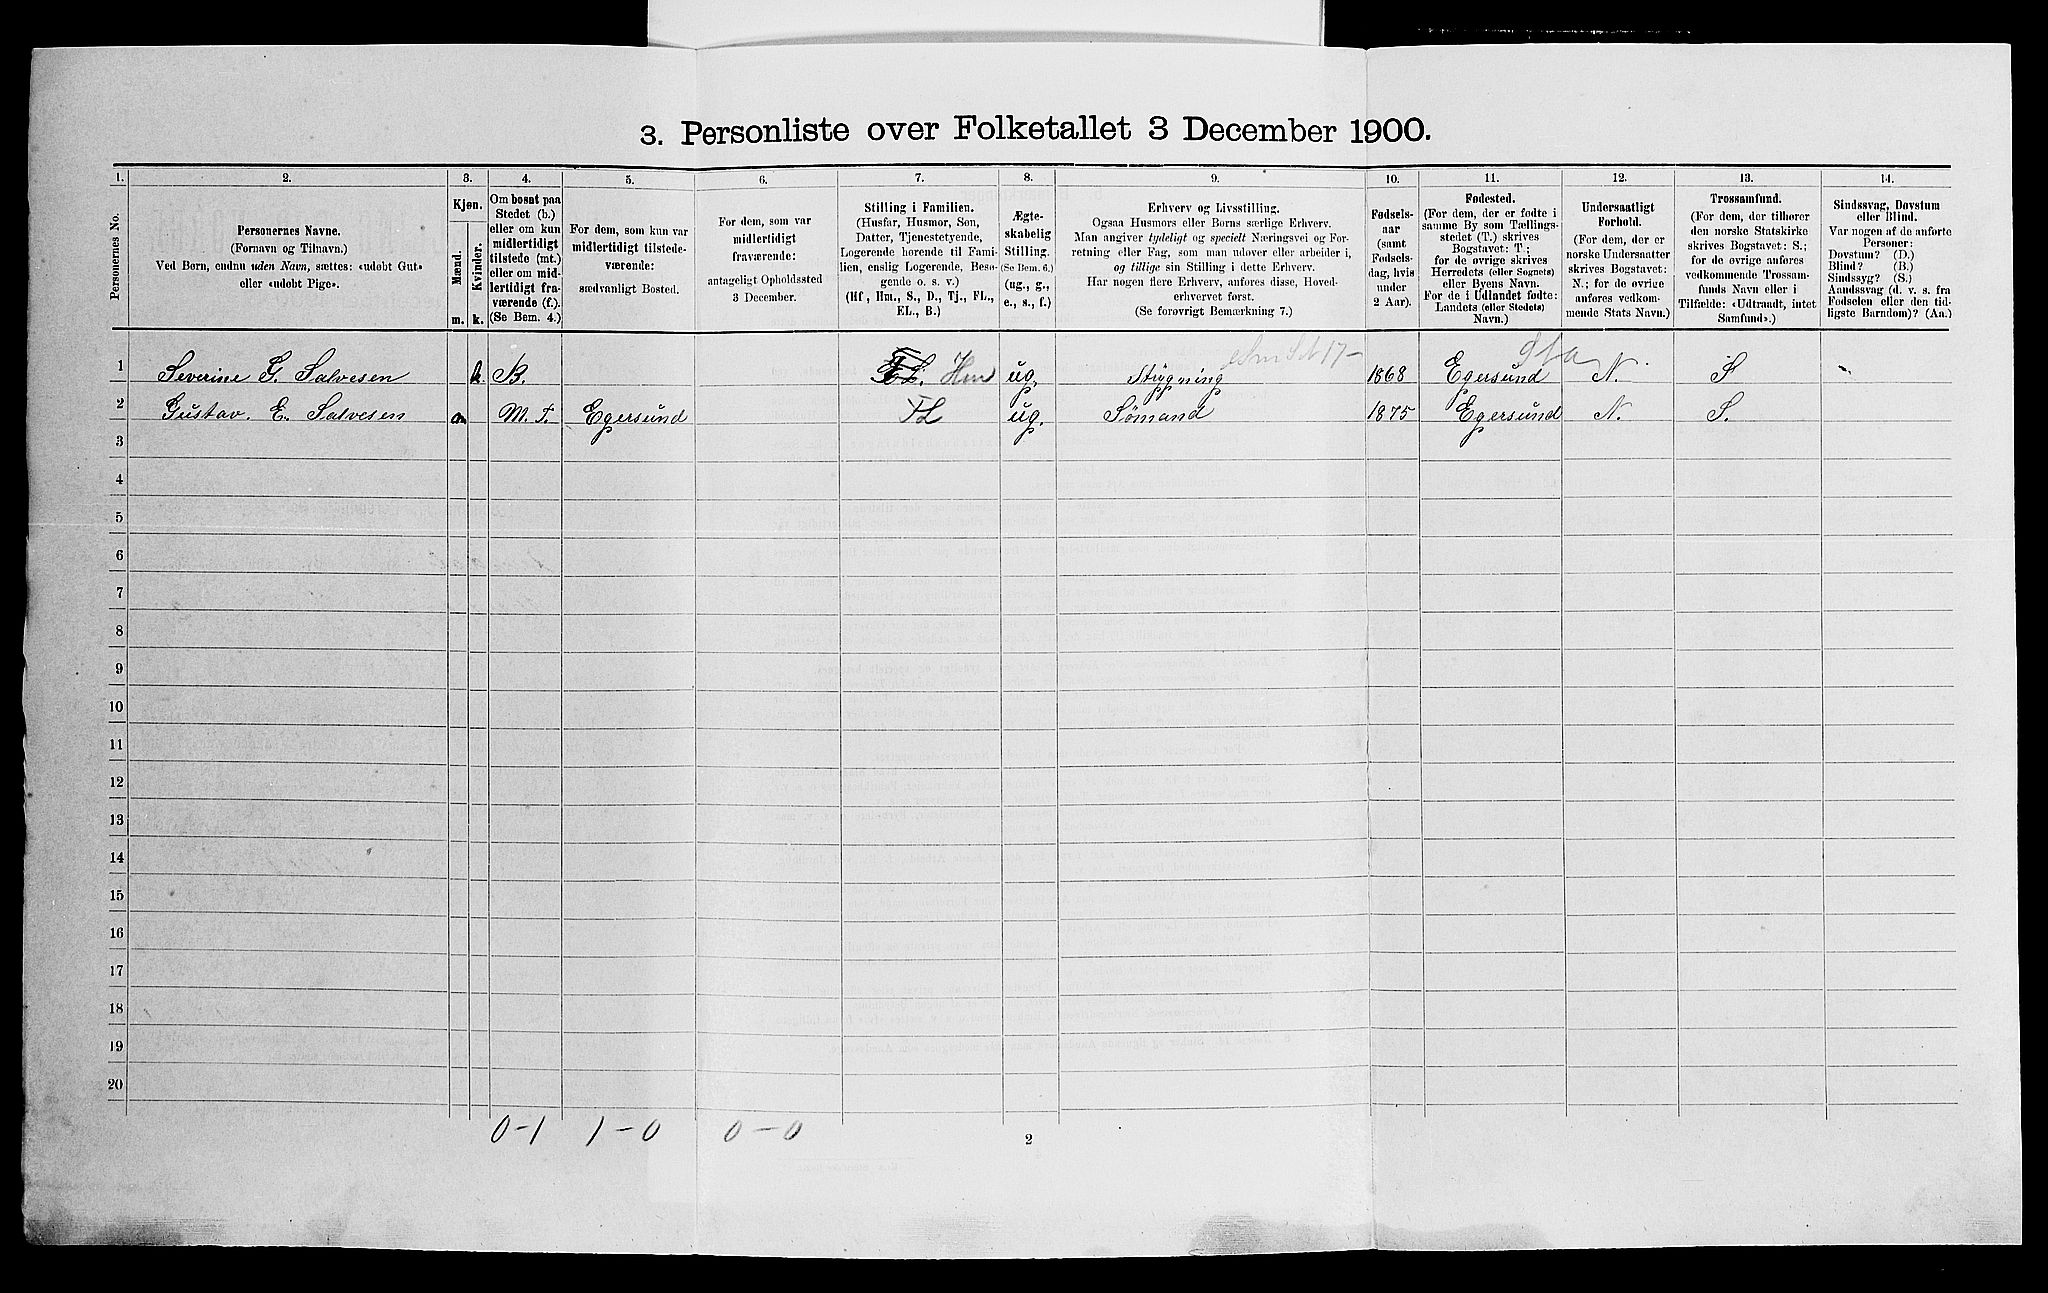 3. Personliste over Folketallet 3 December 1900.
1. 2. 3. 4. 5. 6. 7. 8. 9. 10. 11. 12. 13. 14.
Personernes No.
Personernes Navne.
(Fornavn og Tilnavn.)
Ved Børn, endnu uden Navn, sættes: «udøbt Gut»
eller «udøbt Pige».
Kjøn.
Mænd.
Kvinder.
m. k.
Om bosat paa
Stedet (b.)
eller om kun
midlertidigt
tilstede (mt.)
eller om mid-
lertidigt fra-
værende (f.).
(Se Bem. 4.)
For dem, som kun var
midlertidigt tilstede-
værende:
sædvanligt Bosted.
For dem, som var
midlertidigt
fraværende:
antageligt Opholdssted
3 December.
Stilling i Familien.
(Husfar, Husmor, Søn,
Datter, Tjenestetyende,
Logerende hørende til Fami-
lien, enslig Logerende, Besø-
gende o. s. v.)
(Hf., Hm., S., D., Tj., FL.,
EL., B.)
Ægte-
skabelig
Stilling.
(Se Bem. 6.)
(ug., g.,
e., s., f.)
Erhverv og Livsstilling.
Ogsaa Husmors eller Børns særlige Erhverv.
Man angiver tydeligt og specielt Næringsvei og For-
retning eller Fag, som man udøver eller arbeider i,
og tillige sin Stilling i dette Erhverv.
Har nogen flere Erhverv, anføres disse, Hoved-
erhvervet først.
(Se forøvrigt Bemærkning 7.)
Fødsels-
aar
(samt
Fødsels-
dag, hvis
under
2 Aar).
Fødested.
(For dem, der er fødte i
samme By som Tællings-
stedet (T.) skrives
Bogstavet: T.;
for de øvrige skrives
Herredets (eller Sognets)
eller Byens Navn.
For de i Udlandet fødte:
Landets (eller Stedets)
Navn.)
Undersaatligt
Forhold.
(For dem, der er
norske Undersaatter
skrives Bogstavet:
N.; for de øvrige
anføres vedkom-
mende Stats Navn.)
Trossamfund.
(For dem, der tilhører
den norske Statskirke
skrives Bogstavet: S.;
for de øvrige anføres
vedkommende Trossam-
funds Navn eller i
Tilfælde: «Udtraadt, intet
Samfund».)
Sindssvag, Døvstum
eller Blind.
Var nogen af de anførte
Personer:
Døvstum? (D.)
Blind? (B.)
Sindssyg? (S.)
Aandssvag (d. v. s. fra
Fødselen eller den tid-
ligste Barndom)? (Aa.)
1 Severine G. Salvesen k. B. Hm ug. Strygning 1868 Egersund N. S
2 Gustav. E. Salvesen m M. T. Egersund FL ug. Sømand 1875 Egersund N. S.
3
4
5
6
7
8
9
10
11
12
13
14
15
16
17
18
19
20
0-1 1-0 0-0
2